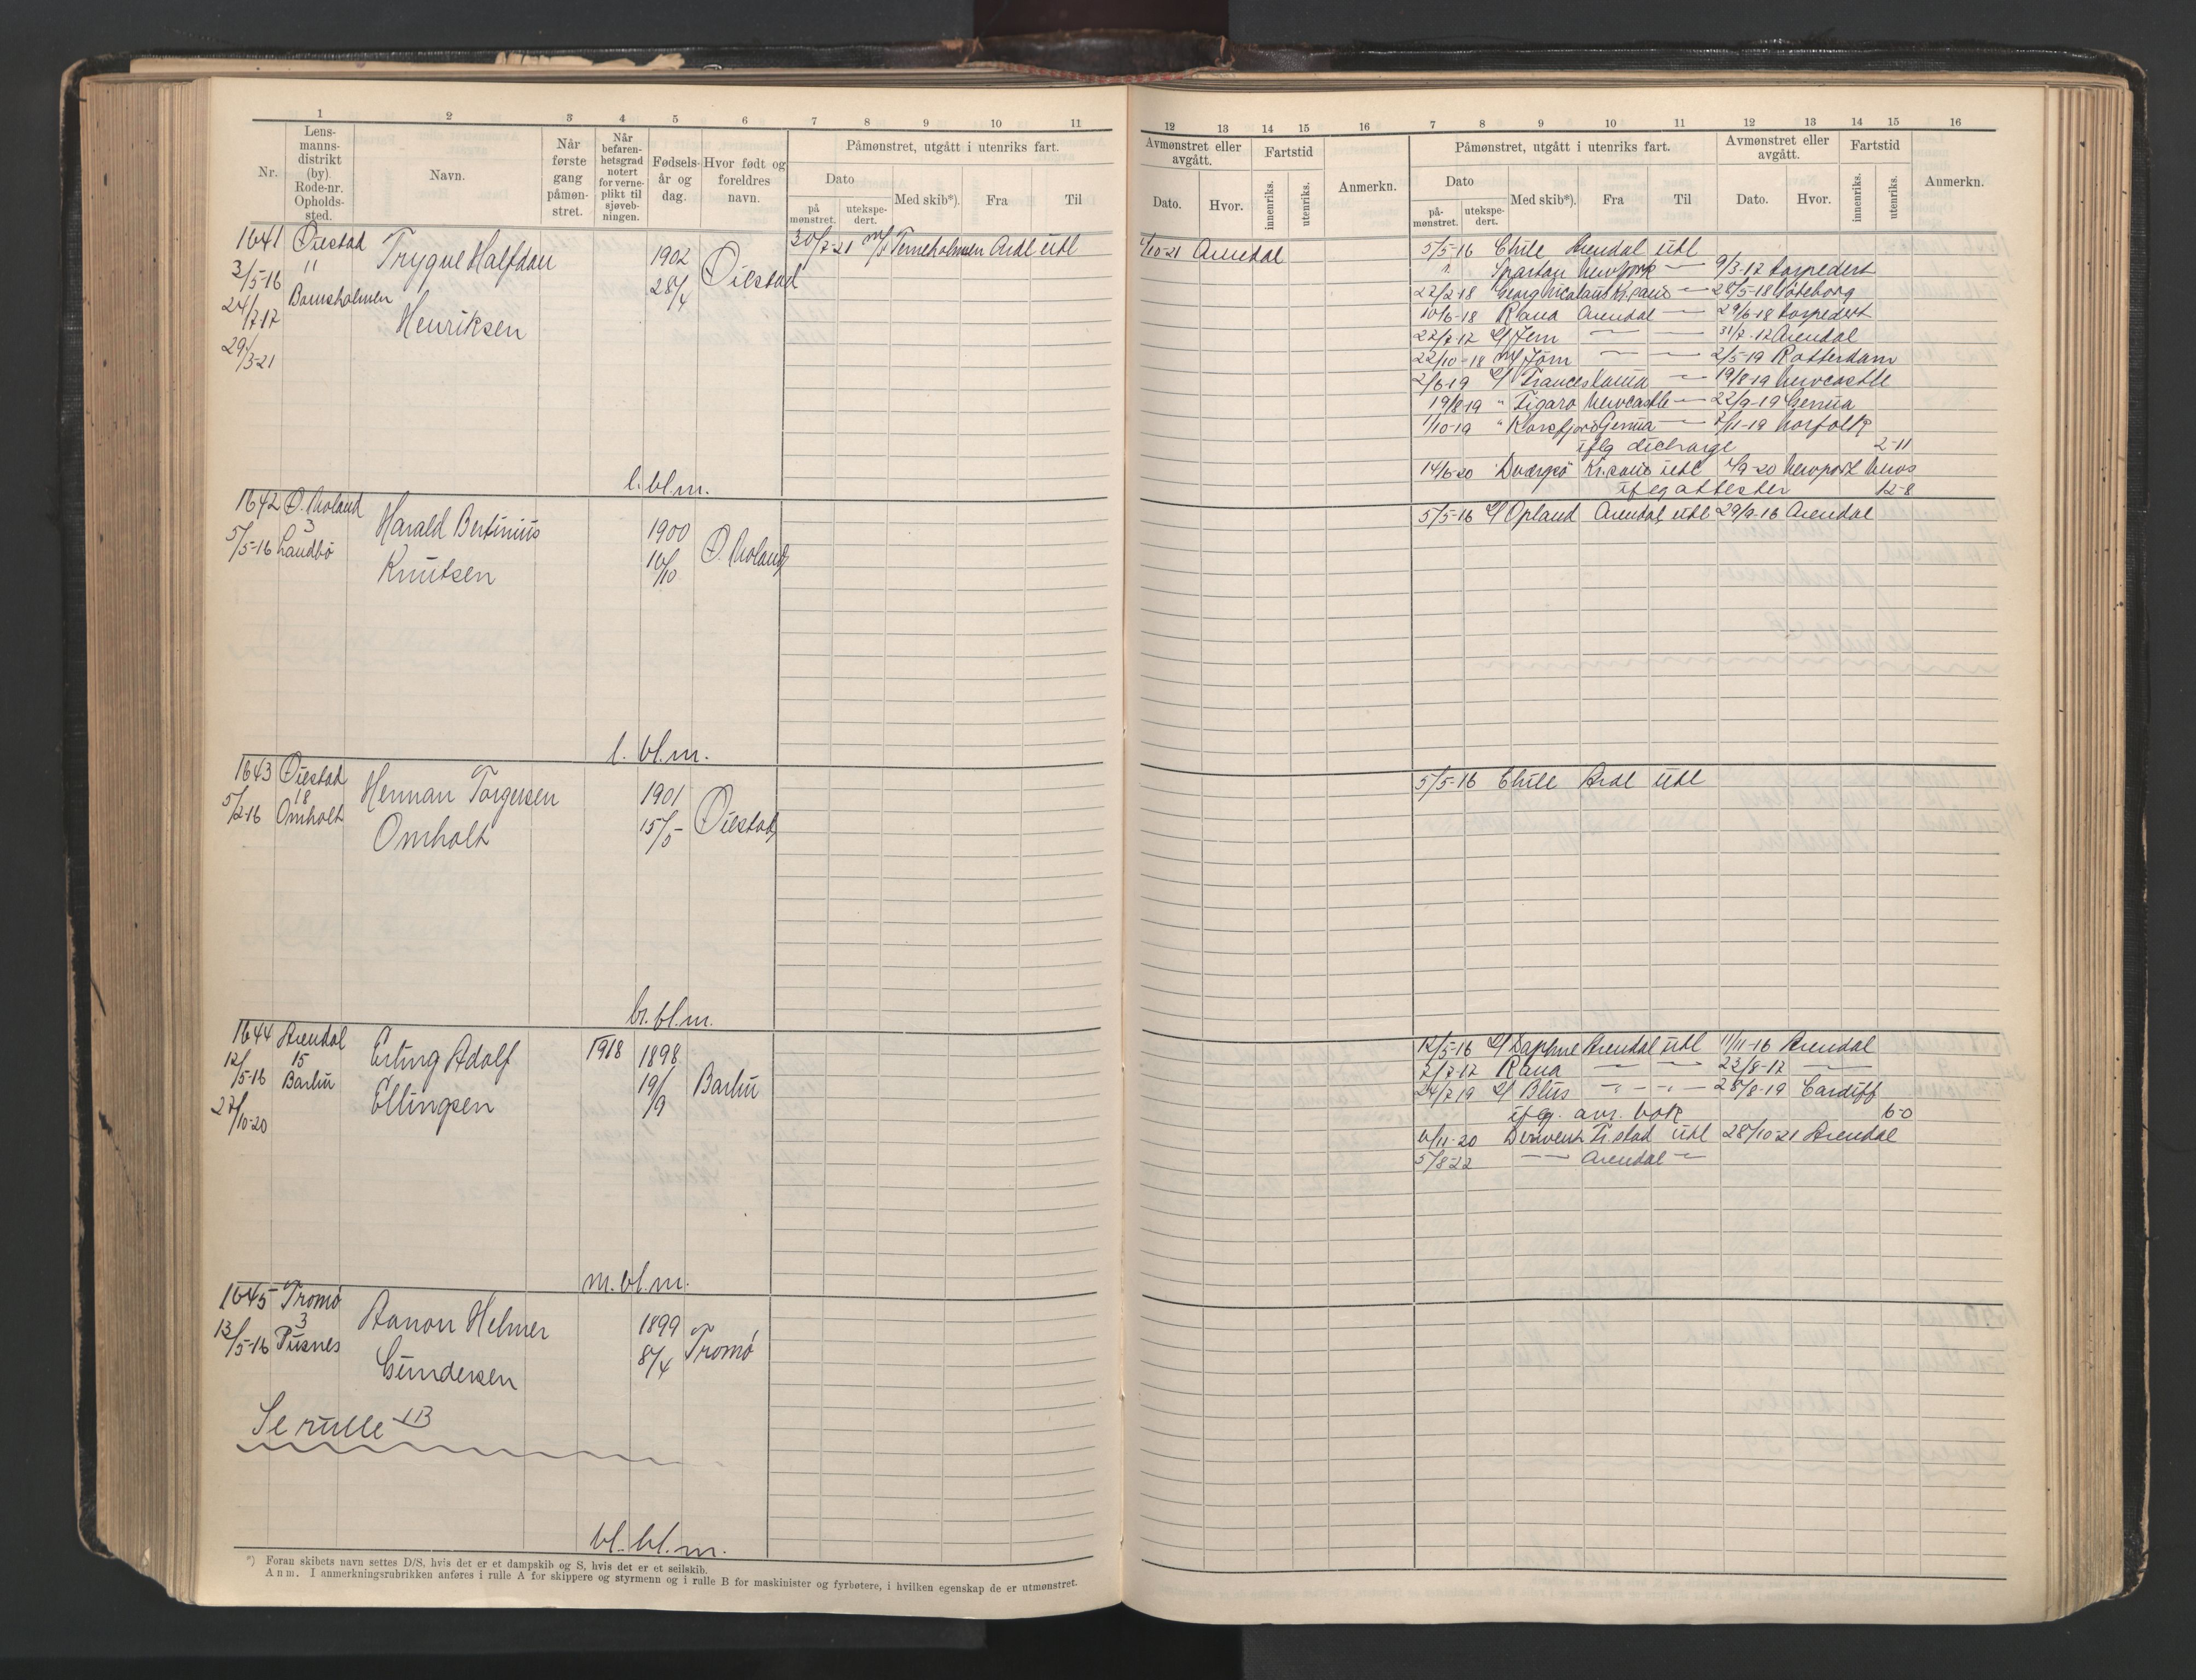 1 2 3 4 5 6 7 8 9 10 11
Nr.
Lens-
manns-
distrikt
(by).
Rode-nr.
Opholds-
sted.
Navn.
Når
første
gang
påmøn-
stret.
Når
befaren-
hetsgrad
notert
for verne-
plikt til
sjøveb-
ningen.
Fødsels-
år og
dag.
Hvor født og
foreldres
navn.
Påmønstret, utgått i utenriks fart.
Dato
på
mønstret.
utekspe-
dert.
Med skib*).
Fra
Til
1641 Øiestad
11
3/5-16
24/7-17
29/3-21
Trygve Halfdan
Henriksen
1902
28/4
Øiestad
30/7-21 Terneholmen Ardl utl
l. bl. m.
1642 Ø. Moland
3
5/5-16 Landbø
Harald Bertinius
Knutsen
1900
10/10
Ø. Moland
l. bl. m.
1643 Øiestad
18
5/2-16 Omholt
Herman Torgersen
Omholt
1901
15/5
Øiestad
br. bl. m.
1644 Arendal
15
12/5-16 Barbu
27/10-20
Erling Adolf
Ellingsen
1918
1898
19/9
Barbu
m. bl. m.
1645 Tromø
3
13/5-16 Pusnes
Aanon Helmer
Gundersen
1899
8/4
Tromø
Se rulle B
bl. bl. m.
*) Foran skibets navn settes D/S, hvis det er et dampskib og S, hvis det er et seilskib.
Anm. I anmerkningsrubrikken anføres i rulle A for skippere og styrmenn og i rulle B for maskinister og fyrbøtere, i hvilken egenskap de er utmønstret.
12 13 14 15 16 7 8 9 10 11 12 13 14 15 16
Avmønstret eller
avgått.
Dato.
Hvor.
Fartstid
innenriks.
utenriks.
Anmerkn.
Påmønstret, utgått i utenriks fart.
Dato
på-
mønstret.
utekspe-
dert.
Med skib*).
Fra
Til
Avmønstret eller
avgått.
Dato.
Hvor.
Fartstid
innenriks.
utenriks.
Anmerkn.
/10-21 Arendal
5/5-16 Chile Arendal utl
" Spartan Newyork — 9/3-17 torpedert
22/2-18 Georg Nicolaus Kr.sand — 28/5-18 Göteborg
10/6-18 Rana Arendal — 29/6-18 torpedert
22/7-17 Jern — — 31/7-17 Arendal
22/10-18 Jörn — — 2/5-19 Rotterdam
2/6-19 — 19/8-19 Newcastle
19/8-19 " Figaro Newcastle — 22/9-19 Genua
1/10-19 " Korsfjord Genua — /11-19 Norfolk
iflg discharge 2-11
14/6-20 Dvergsö Kr.sand utl /9-20 Newport News
iflg attester 12-8
5/5-16 Opland Arendal utl 29/9-16 Arendal
5/5-16 Chile Ardl utl
12/5-16 Daphne Arendal utl 11/11-16 Arendal
7/7-17 Rana — — 23/8-17 —
24/7 19 Blus - " - " - 28/8-19 Cardiff
iflg. avr. bok 6-0
/11-20 Derwent Fr.stad utl 28/10-21 Arendal
5/8-22 — Arendal —